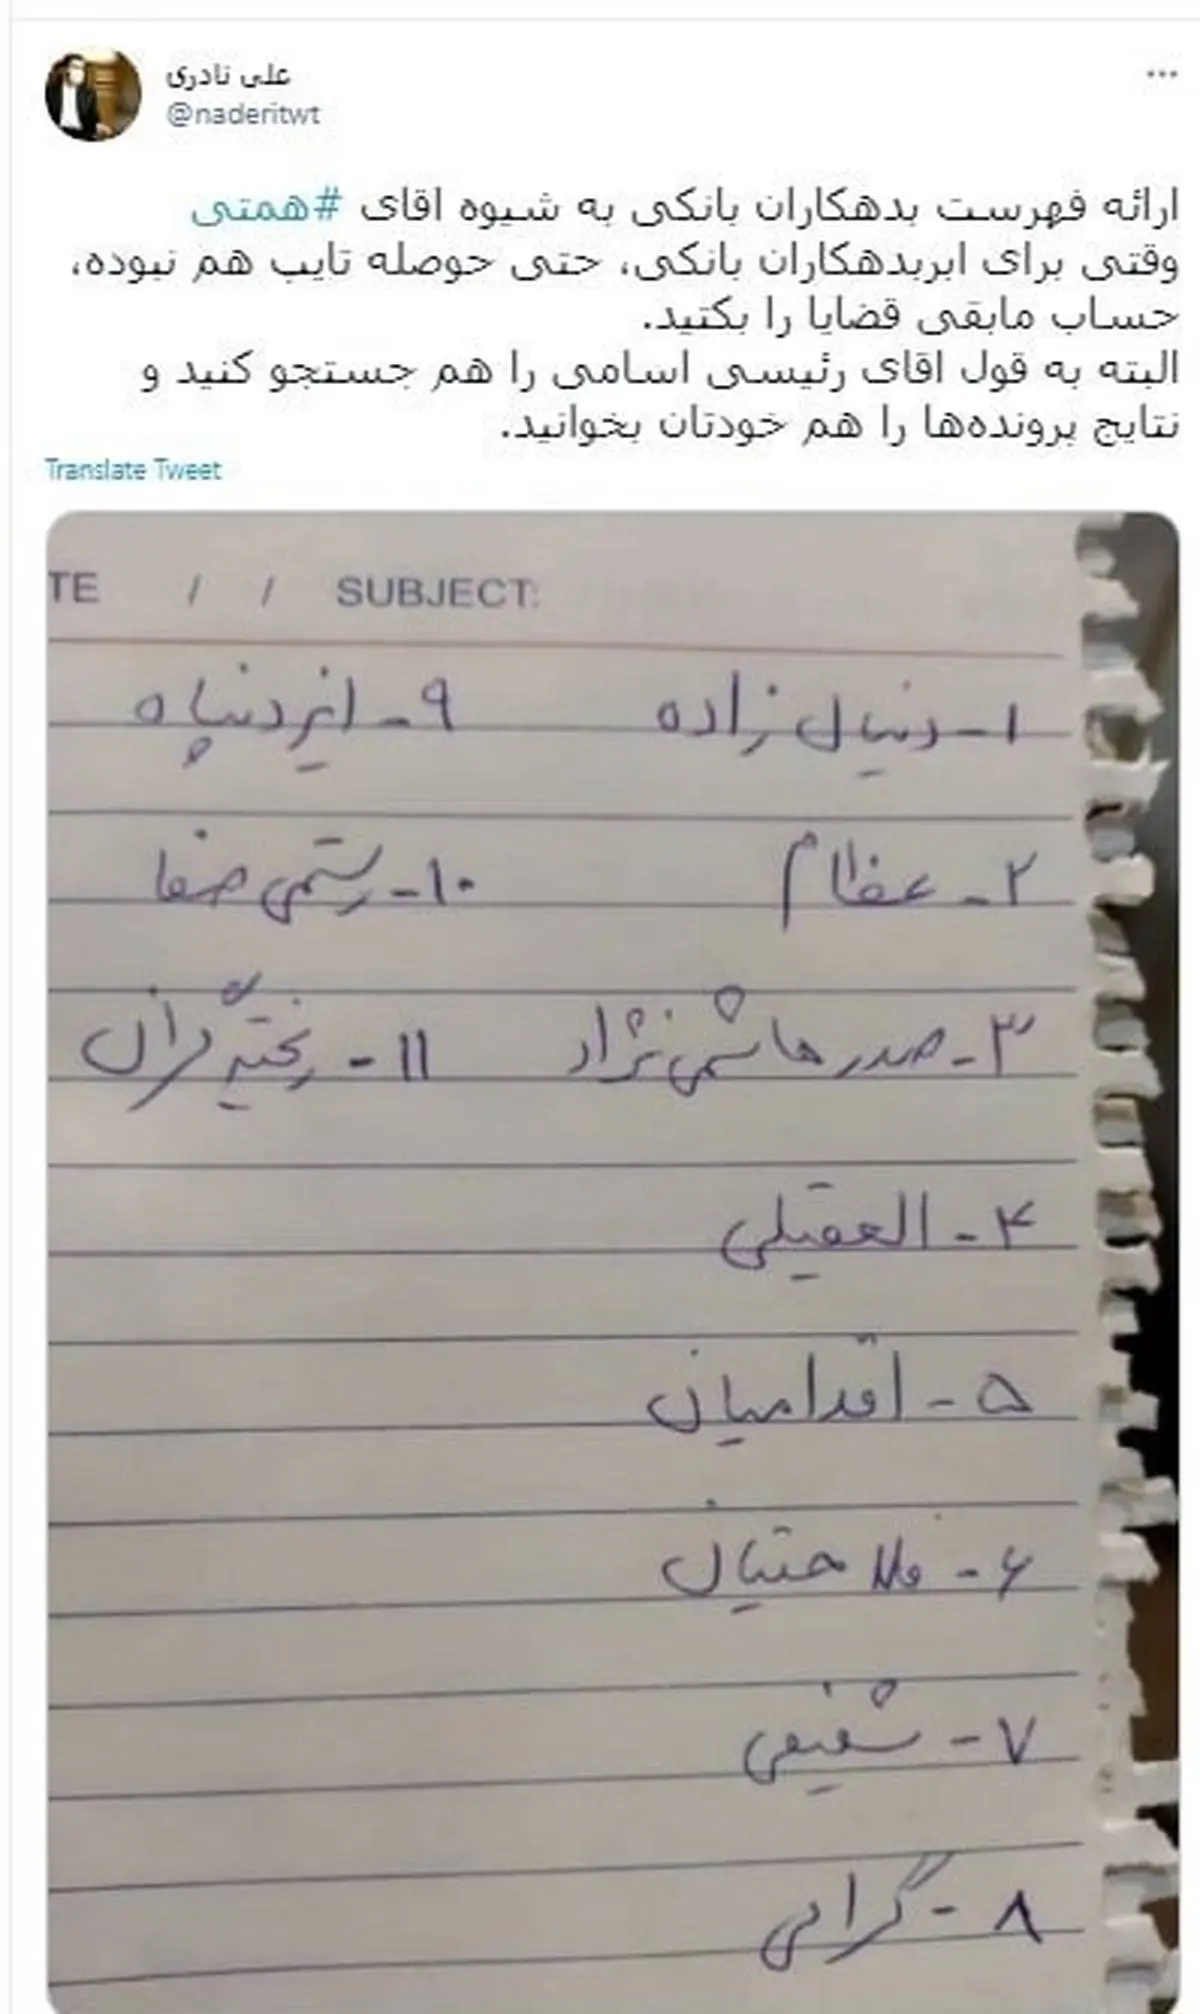 علی نادری
@naderitwt
ارائه فهرست بدهکاران بانکی به شیوه اقای #همتی
وقتی برای ابربدهکاران بانکی، حتی حوصله تایپ هم نبوده،
حساب مابقی قضایا را بکنید.
البته به قول اقای رئیسی اسامی را هم جستجو کنید و
نتایج پرونده‌ها را هم خودتان بخوانید.
Translate Tweet
TE / / SUBJECT:
۱- دنیال زاده
۲- عظام
۳- صدر هاشمی نژاد
۴- العقیلی
۵- اقدامیان
۶- فلاحتیان
۷- شفیعی
۸- گرامی
۹- ایزدپناه
۱۰- رستمی صفا
۱۱- ریخته گران